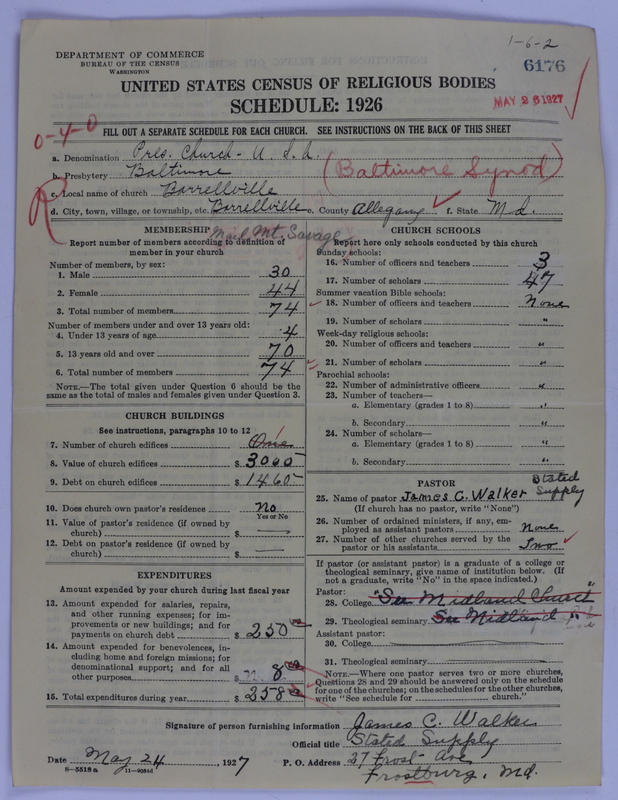 1-6-2
DEPARTMENT OF COMMERCE
BUREAU OF THE CENSUS
WASHINGTON
6176
UNITED STATES CENSUS OF RELIGIOUS BODIES
SCHEDULE: 1926
MAY 26 1927
0-4-0
FILL OUT A SEPARATE SCHEDULE FOR EACH CHURCH. SEE INSTRUCTIONS ON THE BACK OF THIS SHEET
a. Denomination Pres. Church - U.S.A.
b. Presbytery Baltimore (Baltimore Synod)
c. Local name of church Barrellville
d. City, town, village, or township, etc. Barrellville e. County Allegany f. State Md.
Mail Mt. Savage
MEMBERSHIP
Report number of members according to definition of
member in your church
Number of members, by sex:
1. Male 30
2. Female 44
3. Total number of members 74
Number of members under and over 13 years old:
4. Under 13 years of age 4
5. 13 years old and over 70
6. Total number of members 74
NOTE.—The total given under Question 6 should be the
same as the total of males and females given under Question 3.
CHURCH BUILDINGS
See instructions, paragraphs 10 to 12
7. Number of church edifices One 1
8. Value of church edifices $ 3000
9. Debt on church edifices $ 1460
10. Does church own pastor's residence No
Yes or No
11. Value of pastor's residence (if owned by
church) $ —
12. Debt on pastor's residence (if owned by
church) $ —
EXPENDITURES
Amount expended by your church during last fiscal year
13. Amount expended for salaries, repairs,
and other running expenses; for im-
provements or new buildings; and for
payments on church debt $ 250 00
14. Amount expended for benevolences, in-
cluding home and foreign missions; for
denominational support; and for all
other purposes $ 8 00
15. Total expenditures during year $ 258
CHURCH SCHOOLS
Report here only schools conducted by this church
Sunday schools:
16. Number of officers and teachers 3
17. Number of scholars 47
Summer vacation Bible schools:
18. Number of officers and teachers None
19. Number of scholars "
Week-day religious schools:
20. Number of officers and teachers "
21. Number of scholars "
Parochial schools:
22. Number of administrative officers "
23. Number of teachers—
a. Elementary (grades 1 to 8) "
b. Secondary "
24. Number of scholars—
a. Elementary (grades 1 to 8) "
b. Secondary "
PASTOR
25. Name of pastor James C. Walker Stated Supply
(If church has no pastor, write "None")
26. Number of ordained ministers, if any, em-
ployed as assistant pastors None
27. Number of other churches served by the
pastor or his assistants Two
If pastor (or assistant pastor) is a graduate of a college or
theological seminary, give name of institution below. (If
not a graduate, write "No" in the space indicated.)
Pastor:
28. College "See Midland Church"
29. Theological seminary See Midland "
Assistant pastor:
30. College
31. Theological seminary
NOTE.—Where one pastor serves two or more churches,
Questions 28 and 29 should be answered only on the schedule
for one of the churches; on the schedules for the other churches,
write "See schedule for church."
Signature of person furnishing information James C. Walker
Official title Stated Supply
Date May 24, 1927 P. O. Address 27 Frost Ave
Frostburg, Md.
8—5518a 11—9084d